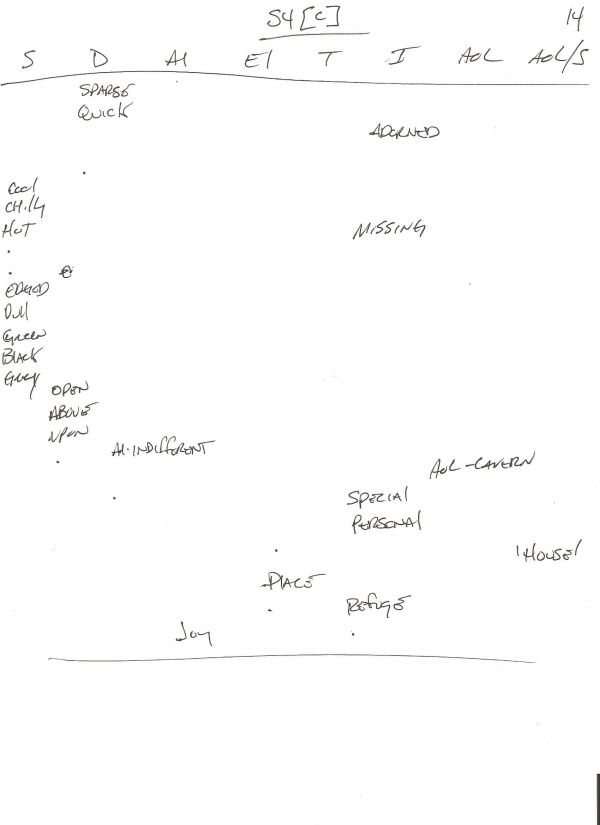 S4 [C]
14
S D AI EI T I AOL AOL/S
SPARSE
QUICK
ADORNED
Cool
CHilly
HOT
MISSING
EDGED
Dull
Green
Black
Grey
OPEN
ABOVE
UPON
AI-INDIffERENT
AOL-CAVERN
SPECIAL
PERSONAL
'HOUSE'
PlACE
REfugE
Joy